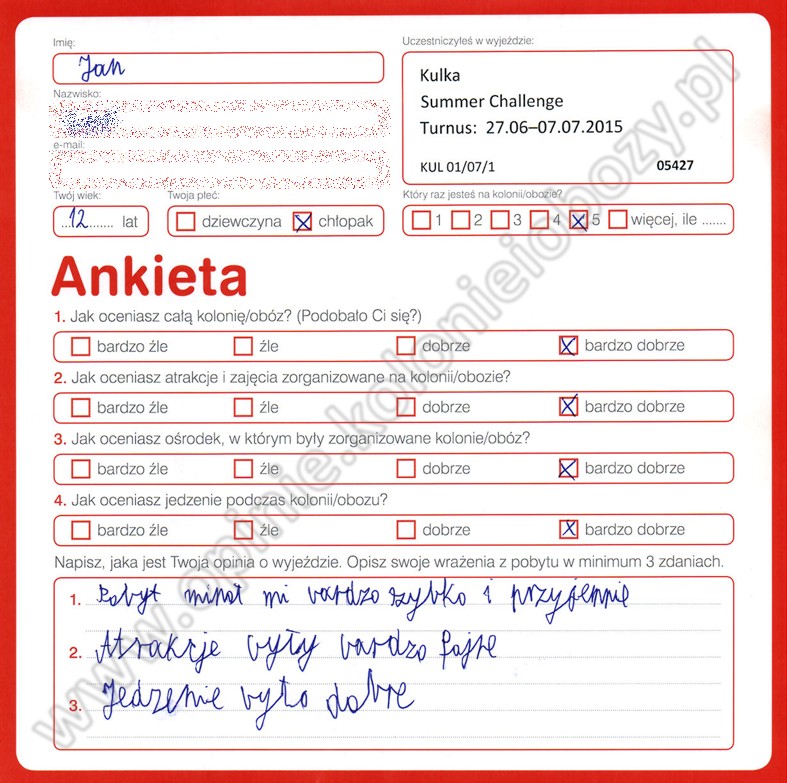 Imię:
Jan
Uczestniczyłeś w wyjeździe:
Kulka
Summer Challenge
Turnus: 27.06–07.07.2015
KUL 01/07/1 05427
Nazwisko:
e-mail:
Twój wiek:
...12....... lat
Twoja płeć:
dziewczyna chłopak
Który raz jesteś na kolonii/obozie?
1 2 3 4 5 więcej, ile .......
Ankieta
1. Jak oceniasz całą kolonię/obóz? (Podobało Ci się?)
bardzo źle źle dobrze bardzo dobrze
2. Jak oceniasz atrakcje i zajęcia zorganizowane na kolonii/obozie?
bardzo źle źle dobrze bardzo dobrze
3. Jak oceniasz ośrodek, w którym były zorganizowane kolonie/obóz?
bardzo źle źle dobrze bardzo dobrze
4. Jak oceniasz jedzenie podczas kolonii/obozu?
bardzo źle źle dobrze bardzo dobrze
Napisz, jaka jest Twoja opinia o wyjeździe. Opisz swoje wrażenia z pobytu w minimum 3 zdaniach.
1. Pobyt minoł mi bardzo szybko i przyjemnie
2. Atrakcje były bardzo fajne
3. Jedzenie było dobre
www.opinie.kolonieiobozy.pl